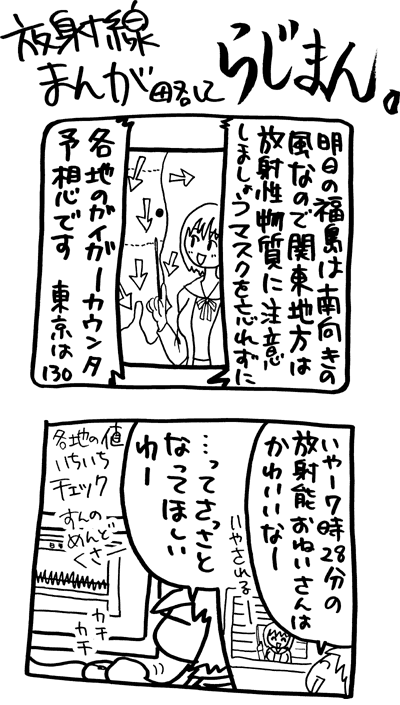 放射線
まんが略して
らじまん。
明日の福島は南向きの
風なので関東地方は
放射性物質に注意
しましょうマスクを忘れずに
各地のガイガーカウンタ
予想です 東京は130
いやー7時28分の
放射能おねいさんは
かわいいなー
いやされる
…ってさっさと
なってほしい
わー
各地の値
いちいち
チェック
すんの
めんど
くさ
カチ
カチ